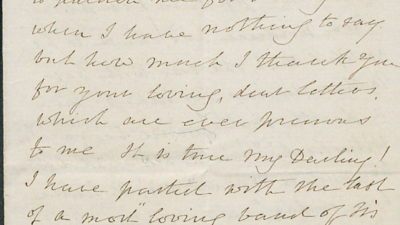 when I have nothing to say
but how much I thank you
for your loving, dear letters,
which are ever precious
to me It is true my Darling!
I have parted with the last
of a most loving band of Sis